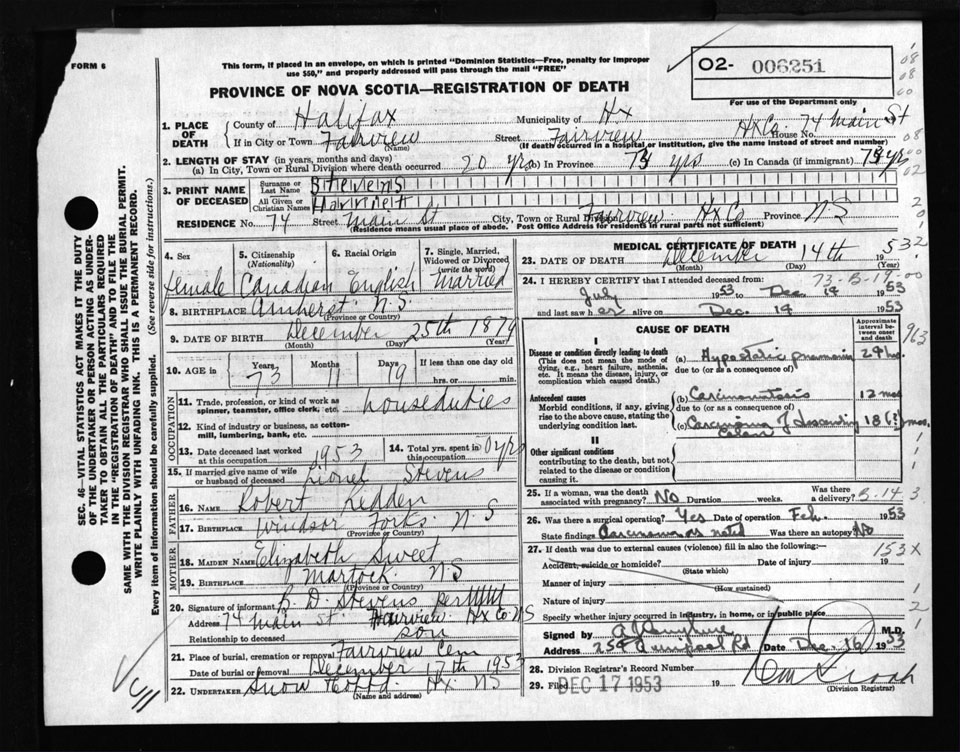 FORM 6
This form, if placed in an envelope, on which is printed "Dominion Statistics—Free, penalty for improper
use $50," and properly addressed will pass through the mail "FREE"
O2- 006251
PROVINCE OF NOVA SCOTIA—REGISTRATION OF DEATH
For use of the Department only
1. PLACE OF DEATH
County of Halifax Municipality of Hx
If in City or Town Fairview Street Fairview Hx Co House No. 74 Main St
(Name) (If death occurred in a hospital or institution, give the name instead of street and number)
2. LENGTH OF STAY (in years, months and days)
(a) In City, Town or Rural Division where death occurred 20 yrs (b) In Province yrs (c) In Canada (if immigrant) yrs
3. PRINT NAME OF DECEASED
Surname or Last Name Stevens
All Given or Christian Names Harriet
RESIDENCE No. 74 Street Main St City, Town or Rural Division Fairview Hx Co Province NS
(Residence means usual place of abode. Post Office Address for residents in rural parts not sufficient)
4. Sex female
5. Citizenship (Nationality) Canadian
6. Racial Origin English
7. Single, Married, Widowed or Divorced (write the word) Married
8. BIRTHPLACE Amherst N.S.
(Province or Country)
9. DATE OF BIRTH December 25th 1879
(Month) (Day) (Year)
10. AGE in Years 73 Months 11 Days 19 If less than one day old
hrs. or min.
OCCUPATION
11. Trade, profession, or kind of work as
spinner, teamster, office clerk, etc. houseduties
12. Kind of industry or business, as cotton-
mill, lumbering, bank, etc.
13. Date deceased last worked at this occupation 1953
14. Total yrs. spent in this occupation yrs
15. If married give name of wife
or husband of deceased Lionel Stevens
FATHER
16. NAME Robert Redden
17. BIRTHPLACE Windsor Forks N S
(Province or Country)
MOTHER
18. MAIDEN NAME Elizabeth Sweet
19. BIRTHPLACE Martock NS
(Province or Country)
20. Signature of informant B. D. Stevens per
Address 74 Main St Fairview Hx Co NS
Relationship to deceased son
21. Place of burial, cremation or removal Fairview Cem
Date of burial or removal December 17th 1953
22. UNDERTAKER Snow Hx NS
(Name and address)
MEDICAL CERTIFICATE OF DEATH
23. DATE OF DEATH December 14th 1953
(Month) (Day) (Year)
24. I HEREBY CERTIFY that I attended deceased from:
July 1953 to Dec. 14 1953
and last saw her alive on Dec. 14 1953
CAUSE OF DEATH
Approximate interval between onset and death
I
Disease or condition directly leading to death
(This does not mean the mode of
dying, e.g., heart failure, asthenia,
etc. It means the disease, injury, or
complication which caused death.)
(a) Hypostatic pneumonia
due to (or as a consequence of)
Antecedent causes
Morbid conditions, if any, giving
rise to the above cause, stating the
underlying condition last.
(b) Carcinomatosis 12 mos
due to (or as a consequence of)
(c) Carcinoma of descending Colon 18 (?) mos.
II
Other significant conditions
contributing to the death, but not
related to the disease or condition
causing it.
25. If a woman, was the death
associated with pregnancy? No Duration weeks. Was there a delivery?
26. Was there a surgical operation? Yes Date of operation Feb. 1953
State findings Carcinoma as noted Was there an autopsy? No
27. If death was due to external causes (violence) fill in also the following:—
Accident, suicide or homicide? Date of injury 19
(State which)
Manner of injury
(How sustained)
Nature of injury
Specify whether injury occurred in industry, in home, or in public place
Signed by M.D.
Address 254 Quinpool Rd Date Dec. 16 1953
28. Division Registrar's Record Number
29. Filed DEC 17 1953 19
(Division Registrar)
SEC. 46—VITAL STATISTICS ACT MAKES IT THE DUTY
OF THE UNDERTAKER OR PERSON ACTING AS UNDER-
TAKER TO OBTAIN ALL THE PARTICULARS REQUIRED
IN THE "REGISTRATION OF DEATH" AND TO FILE THE
SAME WITH THE DIVISION REGISTRAR WHO SHALL ISSUE THE BURIAL PERMIT.
WRITE PLAINLY WITH UNFADING INK. THIS IS A PERMANENT RECORD.
Every item of information should be carefully supplied. (See reverse side for instructions.)